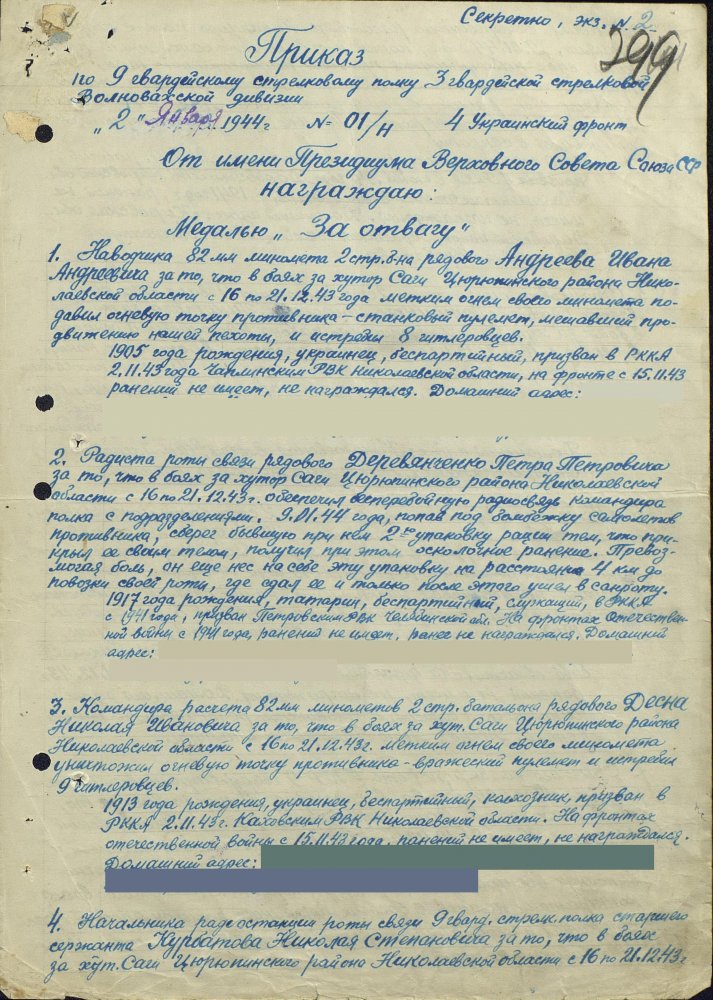 Секретно, экз. N 2
299
Приказ
по 9 гвардейскому стрелковому полку 3 гвардейской стрелковой
Волновахской дивизии
"2" Января 1944г № 01/н 4 Украинский фронт
От имени Президиума Верховного Совета Союза ССР
награждаю:
Медалью „За отвагу"
1. Наводчика 82 мм миномета 2 стр. б-на рядового Андреева Ивана
Андреевича за то, что в боях за хутор Саги Цюрюпинского района Нико-
лаевской области с 16 по 21.12.43 года метким огнем своего миномета по-
давил огневую точку противника – станковый пулемет, мешавший про-
движению нашей пехоты, и истребил 8 гитлеровцев.
1905 года рождения, украинец, беспартийный, призван в РККА
2.11.43 года Чаплинским РВК Николаевской области, на фронте с 15.11.43
ранений не имеет, не награждался. Домашний адрес:
2. Радиста роты связи рядового Деревянченко Петра Петровича
за то, что в боях за хутор Саги Цюрюпинского района Николаевской
области с 16 по 21.12.43г. обеспечил бесперебойную радиосвязь командира
полка с подразделениями. 9.01.44 года, попав под бомбежку самолетов
противника, сберег бывшую при нем 2ю упаковку рации тем, что при-
крыл ее своим телом, получил при этом осколочное ранение. Превоз-
могая боль, он еще нес на себе эту упаковку на расстояние 4 км до
повозки своей роты, где сдал ее и только после этого ушел в санроту.
1917 года рождения, татарин, беспартийный, служащий, в РККА
с 1941 года, призван Петровским РВК Челябинской обл. На фронтах отечествен-
ной войны с 1941 года, ранений не имеет, ранее не награждался. Домашний
адрес:
3. Командира расчета 82 мм минометов 2 стр. батальона рядового Десна
Николая Ивановича за то, что в боях за хут. Саги Цюрюпинского района
Николаевской области с 16 по 21.12.43г. метким огнем своего миномета
уничтожил огневую точку противника - вражеский пулемет и истребил
9 гитлеровцев.
1913 года рождения, украинец, беспартийный, колхозник, призван в
РККА 2.11.43г. Каховским РВК Николаевской области. На фронтах
отечественной войны с 15.11.43 года, ранений не имеет, не награждался.
Домашний адрес:
4. Начальника радиостанции роты связи 9 гвард. стрелк. полка старшего
сержанта Курбатова Николая Степановича за то, что в боях
за хут. Саги Цюрюпинского района Николаевской области с 16 по 21.12.43г.